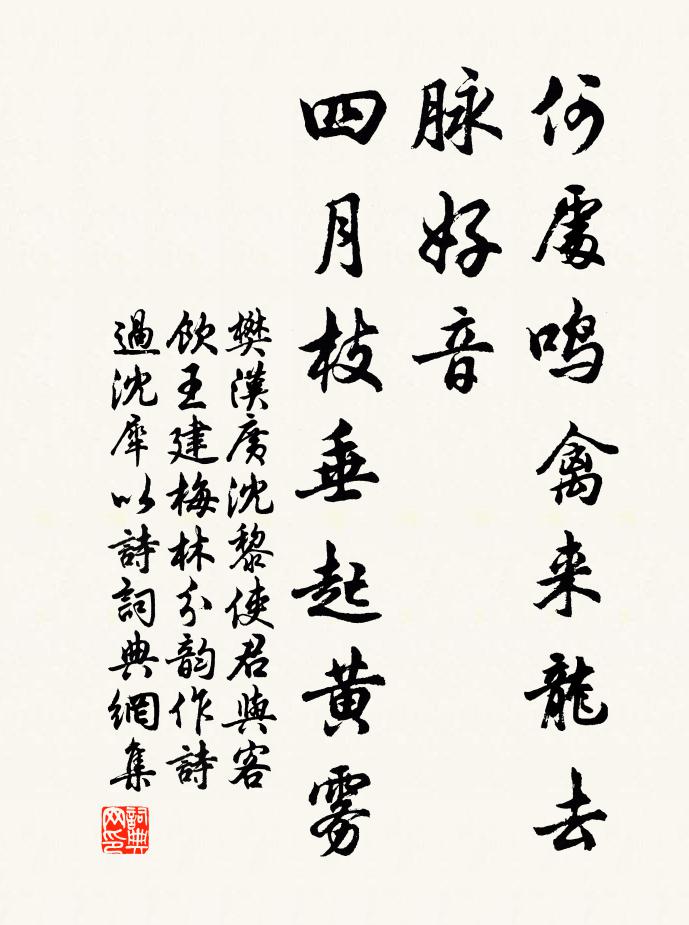 何處鳴禽来龍去
脉好音
四月枝垂起黄雾
樊漢廣沈黎使君與客
飲王建梅林分韵作詩
過沈犀以詩詞典網集
詞典
网印